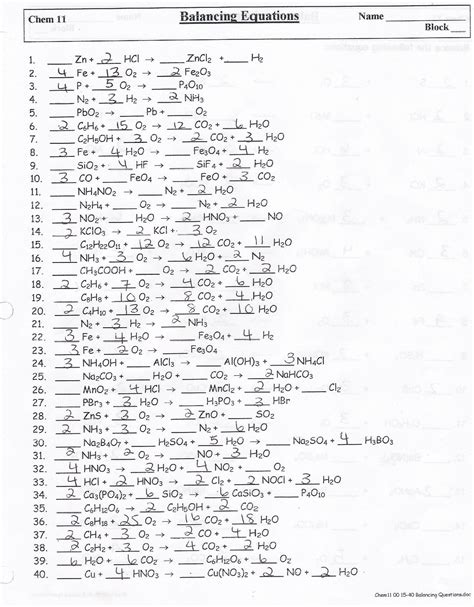 Chem 11 Balancing Equations Name ______
Block ___
1. ___ Zn + 2 HCl → ___ ZnCl2 + ___ H2
2. 4 Fe + 3 O2 → 2 Fe2O3
3. 4 P + 5 O2 → ___ P4O10
4. ___ N2 + 3 H2 → 2 NH3
5. ___ PbO2 → ___ Pb + ___ O2
6. 2 C6H6 + 15 O2 → 12 CO2 + 6 H2O
7. ___ C2H5OH + 3 O2 → 2 CO2 + 3 H2O
8. 3 Fe + 4 H2O → ___ Fe3O4 + 4 H2
9. ___ SiO2 + 4 HF → ___ SiF4 + 2 H2O
10. ___ CO + ___ FeO4 → ___ FeO + 3 CO2
11. ___ NH4NO2 → ___ N2 + 2 H2O
12. ___ N2H4 + ___ O2 → ___ N2 + 2 H2O
13. 3 NO2 + ___ H2O → 2 HNO3 + ___ NO
14. 2 KClO3 → 2 KCl + 3 O2
15. ___ C12H22O11 + 12 O2 → 12 CO2 + 11 H2O
16. 4 NH3 + 3 O2 → 6 H2O + 2 N2
17. ___ CH3COOH + 2 O2 → 2 CO2 + 2 H2O
18. 2 C2H6 + 7 O2 → 4 CO2 + 6 H2O
19. ___ C8H8 + 10 O2 → 8 CO2 + 4 H2O
20. 2 C4H10 + 13 O2 → 8 CO2 + 10 H2O
21. ___ N2 + 3 H2 → 2 NH3
22. 3 Fe + 4 H2O → ___ Fe3O4 + 4 H2
23. 3 Fe + 2 O2 → ___ Fe3O4
24. 3 NH4OH + ___ AlCl3 → ___ Al(OH)3 + 3 NH4Cl
25. ___ Na2CO3 + ___ H2O + ___ CO2 → 2 NaHCO3
26. ___ MnO2 + 4 HCl → ___ MnCl2 + 2 H2O + ___ Cl2
27. ___ PBr3 + 3 H2O → ___ H3PO3 + 3 HBr
28. 2 ZnS + 3 O2 → 2 ZnO + ___ SO2
29. 2 NH3 + ___ O2 → ___ N2 + 3 H2O
30. ___ Na2B4O7 + ___ H2SO4 + 5 H2O → ___ Na2SO4 + 4 H3BO3
31. ___ NH3 + 2 O2 → ___ NO + 3 H2O
32. 4 HNO3 → 2 H2O + 4 NO2 + ___ O2
33. 4 HCl + 2 HNO3 → 2 Cl2 + 2 NOCl + 3 H2O
34. 2 Ca3(PO4)2 + 6 SiO2 → 6 CaSiO3 + ___ P4O10
35. ___ C6H12O6 → 2 C2H5OH + 2 CO2
36. 2 C8H18 + 25 O2 → 16 CO2 + 18 H2O
37. 2 CH4 + 3 O2 → 2 CO + 4 H2O
38. 2 C2H2 + 3 O2 → 4 CO + 2 H2O
39. ___ H2O + 6 CO2 → ___ C6H12O6 + 6 O2
40. ___ Cu + 4 HNO3 → ___ Cu(NO3)2 + 2 NO + 2 H2O
Chem11 OO 15-40 Balancing Questions.doc